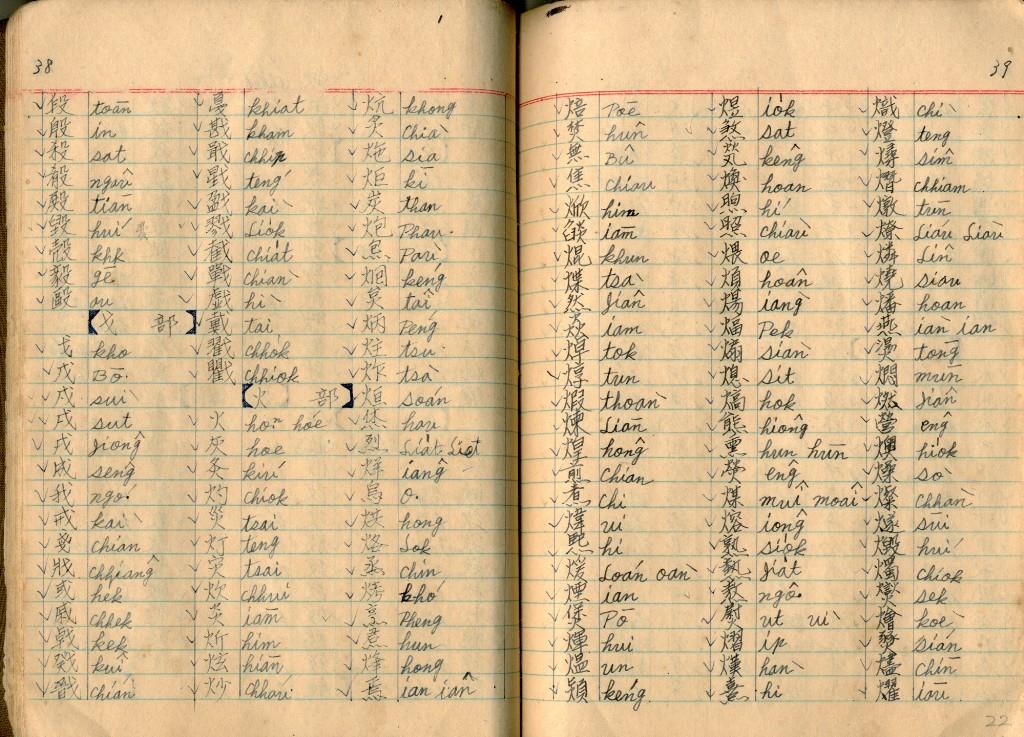 38
段 toān
殷 in
殺 sat
殽 ngâu
殿 tiān
毀 húi
殼 khk
毅 gē
毆 au
戈 部
戈 kho
戊 Bō͘
戍 sùi
戌 sut
戎 Jiông
成 seng
我 ngó͘
戒 kài
戔 chian
戕 chhiâng
或 he̍k
戚 chhek
戟 kek
戣 kûi
戩 chián
戛 khiat
戡 kham
戢 chhip
戥 téng
戤 kài
戮 Lio̍k
截 chia̍t
戰 chiàn
戲 hì
戴 tài
戳 chhok
戵 chhiok
火 部
火 hoⁿ hóe
灰 hoe
灸 kiú
灼 chiok
災 tsai
灯 teng
灾 tsai
炊 chhui
炎 iām
炘 him
炫 hiān
炒 chháu
炕 khong
炙 Chià
炧 sia
炬 kī
炭 than
炮 Phau
炰 Pau
炯 kéng
炱 tâi
炳 Péng
炷 tsu
炸 tsà
烜 soán
烋 hau
烈 Lia̍t
烊 iâng
烏 o͘
烘 hong
烙 Lok
烝 chin
烤 khó
烹 Pheng
焄 hun
烽 hong
焉 ian iân
39
焙 Pōe
焚 hûn
無 Bû
焦 chiau
焮 him
燄 iām
焜 khun
煠 tsa̍
然 Jiân
焱 iam
焯 tok
焞 tun
煆 thoàn
煉 Liān
煌 hông
煎 Chian
煮 Chí
煒 úi
熙 hi
煖 Loán oàn
煙 ian
煲 Pō
煇 hui
熅 un
熲 kéng
煜 io̍k
煞 sat
煢 kêng
煥 hoàn
煦 hí
照 chiàu
煨 oe
煩 hoân
煬 iāng
煏 Pek
煽 siàn
熄 sit
熇 hok
熊 hiông
熏 hun hūn
熒 eng
煤 muî moaî
熔 iông
熟 sio̍k
熱 Jia̍t
熬 ngô͘
熨 ut ùi
熠 ip
熯 hàn
熹 hi
熾 chì
燈 teng
燖 sîm
熸 chhiam
燉 tūn
燎 Liâu Liàu
燐 Lîn
燒 siau
燔 hoan
燕 iàn ian
燙 tong
燜 mūn
燃 Jiân
營 êng
燠 hiok
燥 sò
燦 chhàn
燧 sūi
燬 húi
燭 chiok
燮 sek
燴 kòe
燹 sián
燼 chīn
耀 iāu
22